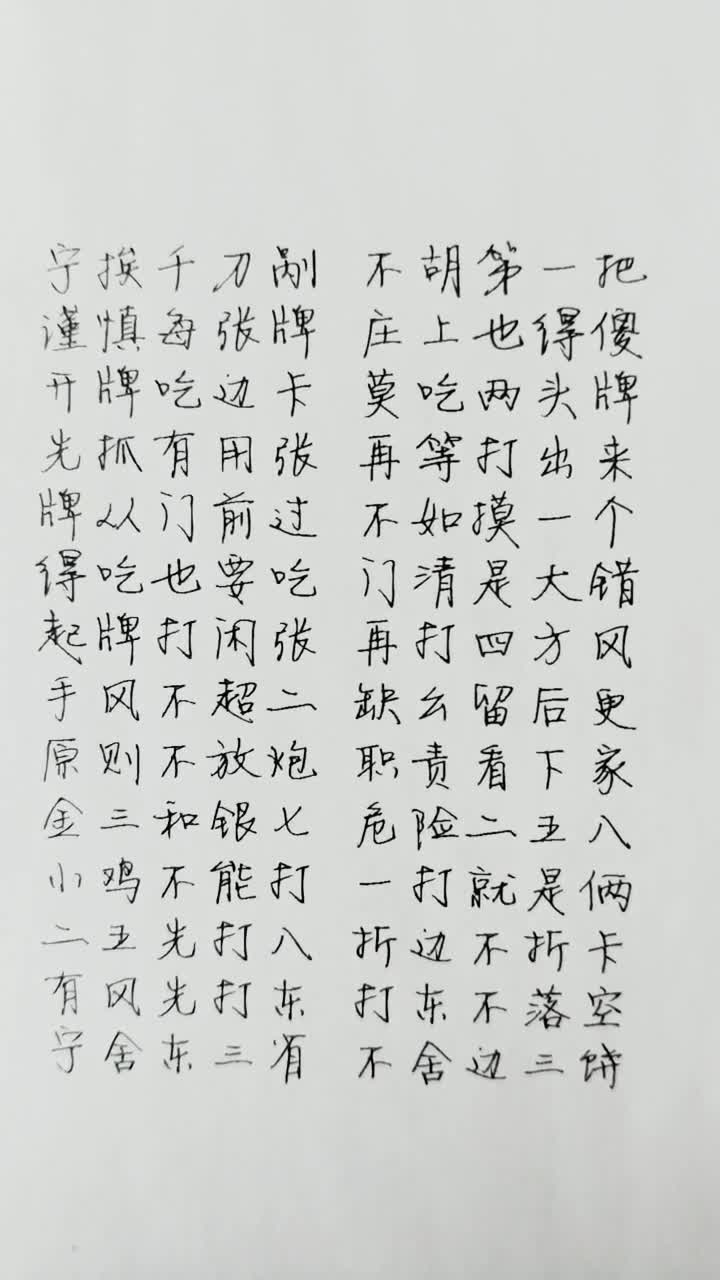 宁挨千刀剐 不胡第一把
谨慎每张牌 庄上也得傻
开牌吃边卡 莫吃两头牌
先抓有用张 再等打出来
牌从门前过 不如摸一个
得吃也要吃 门清是大错
起牌打闲张 再打四方风
手风不超二 缺幺留后更
原则不放炮 职责看下家
金三和银七 危险二五八
小鸡不能打 一打就是俩
二五先打八 折边不折卡
有风先打东 打东不落空
宁舍东三省 不舍边三饼